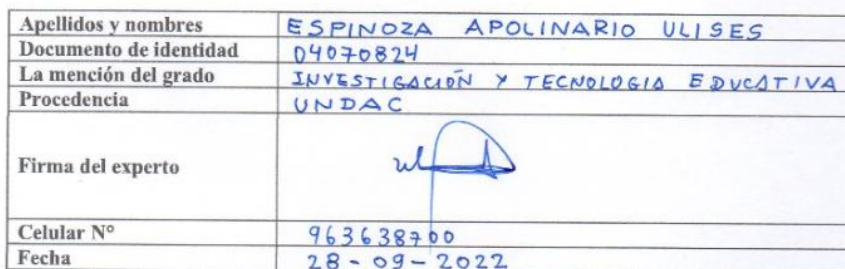 Apellidos y nombres ESPINOZA APOLINARIO ULISES
Documento de identidad 04070824
La mención del grado INVESTIGACIÓN Y TECNOLOGIA EDUCATIVA
Procedencia UNDAC
Firma del experto
Celular N° 963638700
Fecha 28-09-2022